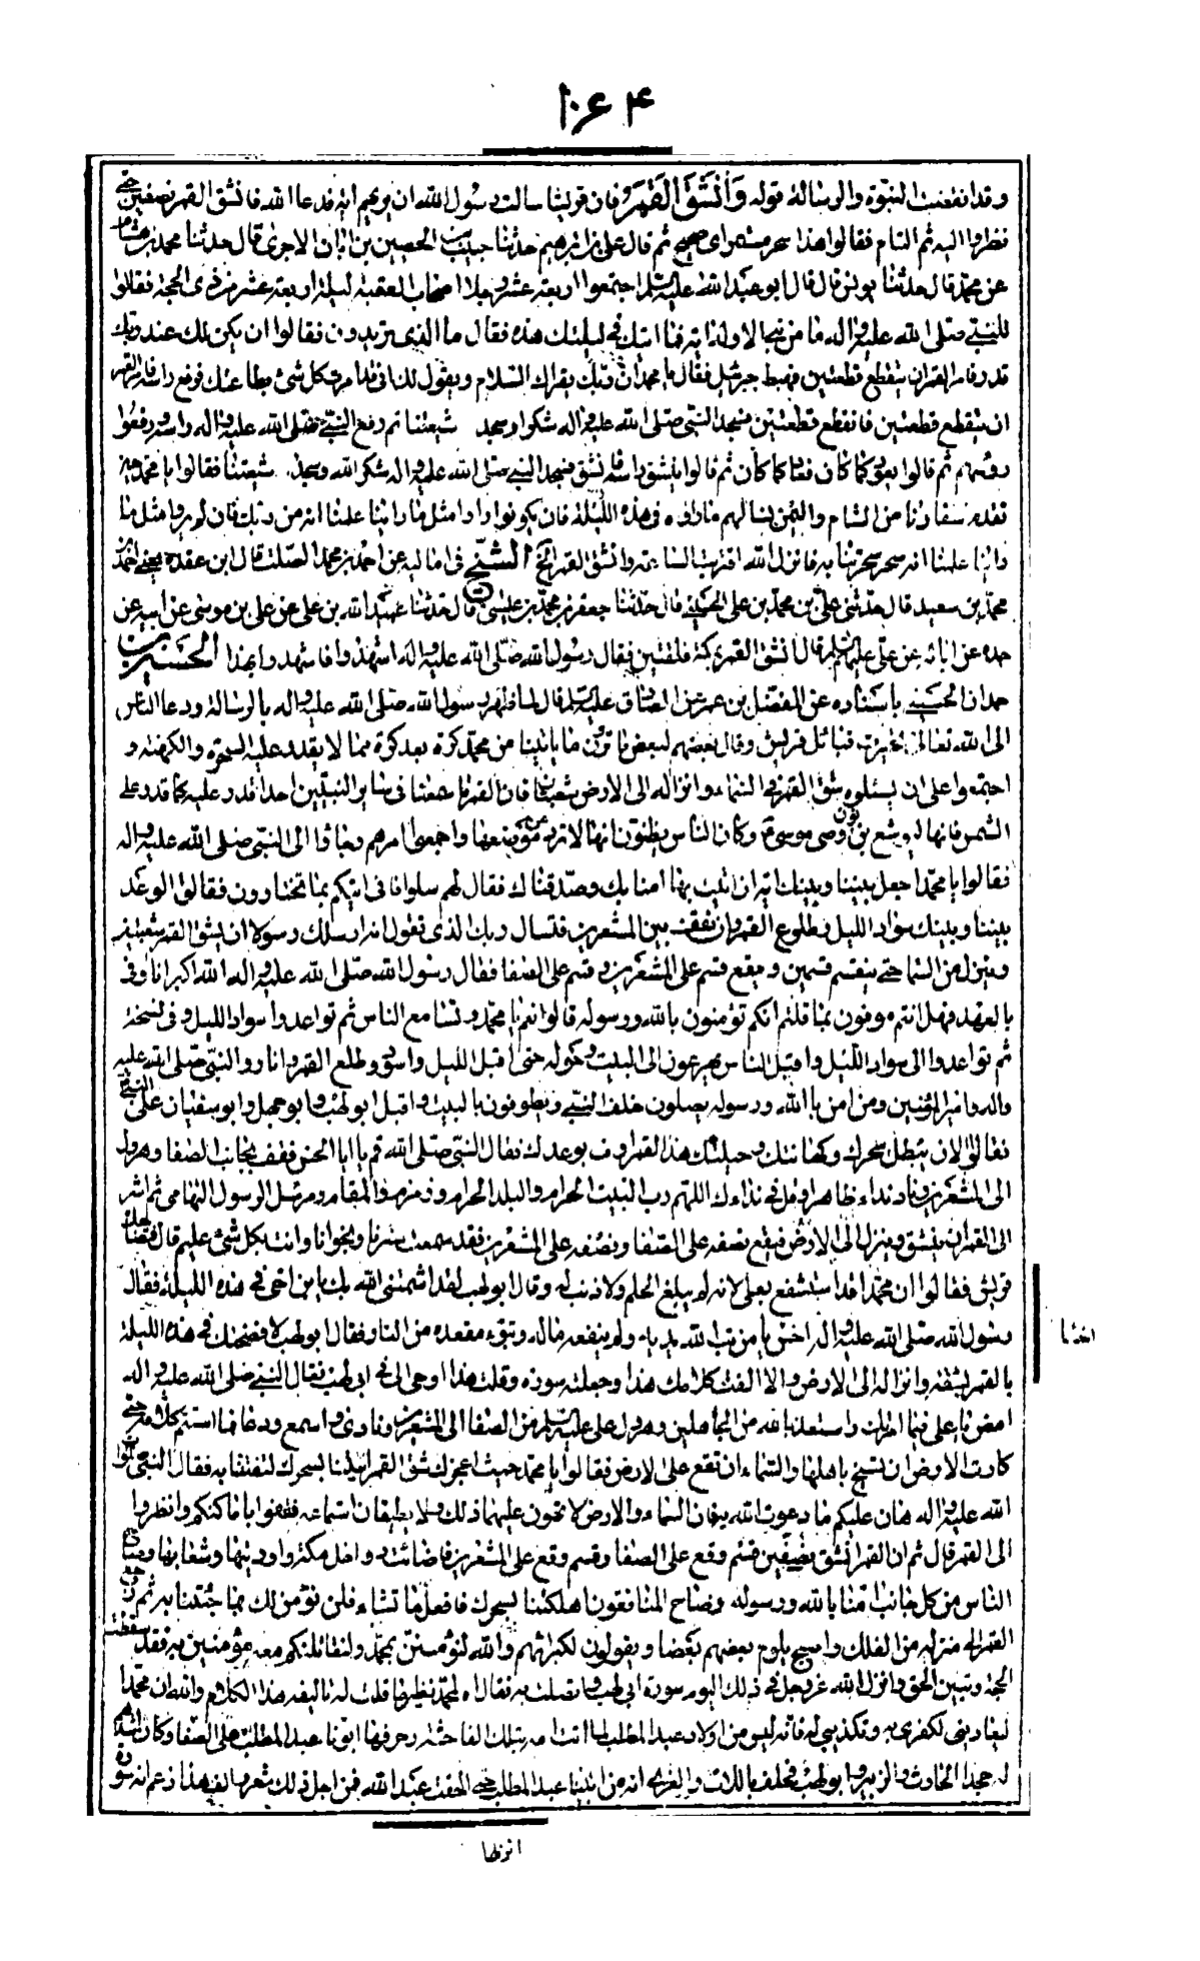 ١٠٦٤
وقد انقضت النبوة والرسالة قوله وَانْشَقَّ الْقَمَرُ فان قريشا سالت رسول الله ان يريهم اية فدعا الله فانشق القمر نصفين حتى
نظروا اليه ثم التام فقالوا هذا سحر مستمر اى صحيح ثم قال على بن ابرهيم حدثنا حبيب بن الحصين بن ابان الاجرى قال حدثنا محمد بن هشام
عن محمد قال حدثنا يونس قال قال ابو عبد الله عليه السلم اجتمعوا اربعة عشر رجلا اصحاب العقبة ليلة اربعة عشر من ذى الحجة فقالوا
للنبي صلى الله عليه واله ما من نبى الا وله اية فما ايتك فى ليلتك هذه فقال ما الذى تريدون فقالوا ان يكن لك عند ربك
قدر فامر القمر ان ينقطع قطعتين فهبط جبرئيل فقال يا محمد ان ربك يقرئك السلام ويقول لك انى قد امرت كل شئ بطاعتك فرفع راسه فامر القمر
ان ينقطع قطعتين فانقطع قطعتين فسجد النبى صلى الله عليه واله شكرا وسجد شيعتنا ثم رفع النبى صلى الله عليه واله راسه ورفعوا
رؤسهم ثم قالوا يعود كما كان فعاد كما كان ثم قالوا ينشق راسه فانشق فسجد النبى صلى الله عليه واله شكرا لله وسجد شيعتنا فقالوا يا محمد حين
تقدم سفارنا من الشام واليمن نسالهم ما راوا فى هذه الليلة فان يكونوا راوا مثل ما راينا علمنا انه من ربك فان لم يروا مثل ما
راينا علمنا انه سحر سحرتنا به فانزل الله اقتربت الساعة وانشق القمر الخ الشيخ فى اماليه عن احمد بن محمد الصلت قال ابن عقدة يعنى احمد بن
محمد بن سعيد قال حدثنى على بن محمد بن على الحسينى قال حدثنا جعفر بن محمد بن عيسى قال حدثنا عبيد الله بن على عن على بن موسى عن ابيه عن
جده عن ابائه عن على عليهم السلم قال انشق القمر بمكة فلقتين فقال رسول الله صلى الله عليه واله اشهدوا اشهدوا بهذا الحسين بن
حمدان الحسينى باسناده عن المفضل بن عمر عن الصادق عليه السلم قال لما ظهر رسول الله صلى الله عليه واله بالرسالة ودعا الناس
الى الله تعالى تحيرت قبائل قريش وقال بعضهم لبعض ما ترون ما ياتينا من محمد كرة بعد كرة مما لا يقدر عليه السحرة والكهنة و
اجتمعوا على ان يسئلوه شق القمر فى السماء وانزاله الى الارض شعبتين فان القمر ما سمعنا فى سائر النبيين احدا قدر عليه كما قدر على
الشمس فانها ليوشع بن نون وصى موسى وكان الناس يظنون انها لا ترد عن موضعها واجمعوا امرهم وجاؤا الى النبى صلى الله عليه واله
فقالوا يا محمد اجعل بيننا وبينك اية ان اتيت بها امنا بك وصدقناك فقال لهم سلوا فانى اتيكم بما تختارون فقالوا الوعد
بيننا وبينك سواد الليل وطلوع القمر وان تقف بين المشعرين فتسال ربك الذى تقول انه ارسلك رسولا ان يشق القمر شعبتين
وينزله من السماء حتى ينقسم قسمين ويقع قسم على المشعرين وقسم على الصفا فقال رسول الله صلى الله عليه واله الله اكبر انا وفى
بالعهد فهل انتم موفون بما قلتم انكم تؤمنون بالله ورسوله قالوا نعم يا محمد وتسامع الناس ثم تواعدوا سواد الليل وفى نسخة
ثم تواعدوا الى سواد الليل واقبل الناس يهرعون الى البيت وحوله حتى اقبل الليل واسود وطلع القمر وانار والنبى صلى الله عليه
واله وامير المؤمنين ومن امن بالله ورسوله يصلون خلف النبى ويطوفون بالبيت واقبل ابو لهب وابو جهل وابو سفيان على النبى
فقالوا الان يبطل سحرك وكهانتك وحيلتك هذا القمر اوف بوعدك فقال النبى صلى الله قم يا ابا الحسن فقف بجانب الصفا وهرول
الى المشعرين وناد نداء ظاهرا وقل فى ندائك اللهم رب البيت الحرام والبلد الحرام وزمزم والمقام ومرسل الرسول التهامى ثم اشر
الى القمر ان ينشق وينزل الى الارض فيقع نصفه على الصفا ونصفه على المشعرين فقد سمعت سرنا ونجوانا وانت بكل شئ عليم قال فتضاحك
قريش فقالوا ان محمدا قد استشفع بعلى لانه لم يبلغ الحلم ولا ذنب له وقال ابو لهب لقد اشمتنى الله بك يا ابن اخى فى هذه الليلة فقال
رسول الله صلى الله عليه واله اخسأ يا من تب الله يديه ولم ينفعه ماله وتبوء مقعده من النار فقال ابو لهب لافضحنك فى هذه الليلة
بالقمر بشقه وانزاله الى الارض والا الفت كلامك هذا وجعلته سورة وقلت هذا اوحى الى فى ابى لهب فقال النبى صلى الله عليه واله
امض يا على فيما امرتك واستعذ بالله من الجاهلين وهرول على عليه السلم من الصفا الى المشعرين ونادى واسمع ودعا فما استتم كلامه حتى
كادت الارض ان تسيخ باهلها والسماء ان تقع على الارض فقالوا يا محمد حيث اعجزك شق القمر اتيتنا بسحرك لتفتننا به فقال النبى صلى
الله عليه واله هان عليكم ما دعوت الله به فان السماء والارض لا تهون عليهما ذلك ولا يطيقان استماعه فقفوا باماكنكم وانظروا
الى القمر قال ثم ان القمر انشق نصفين قسم وقع على الصفا وقسم وقع على المشعرين فاضائت دواخل مكة واوديتها وشعابها وصاح
الناس من كل جانب امنا بالله ورسوله وصاح المنافقون اهلكتنا بسحرك فافعل ما تشاء فلن نؤمن لك بما جئتنا به ثم رجع
القمر الى منزله من الفلك واصبح يلوم بعضهم بعضا ويقولون لكبرائهم والله لنؤمنن بمحمد ولنقاتلنكم معه مؤمنين به فقد سقطت
الحجة وتبين الحق وانزل الله عز وجل فى ذلك اليوم سورة ابى لهب واتصلت به فقال لمحمد نظير ما قلت له تاليفه هذا الكلام والله ان محمدا
ليعادينى لكفرى به وتكذيبى له فانه ليس من اولاد عبد المطلب لما اتت امه بتلك الفاحشة وحرقها ابونا عبد المطلب على الصفا وكان اشدهم
له جحدا الحارث والزبير وابو لهب فحلف باللات والعزى انه من ابينا عبد المطلب حتى الحقت عبد الله فمن اجل ذلك شعر بالفه هذا وزعم انه سورة
انزلها